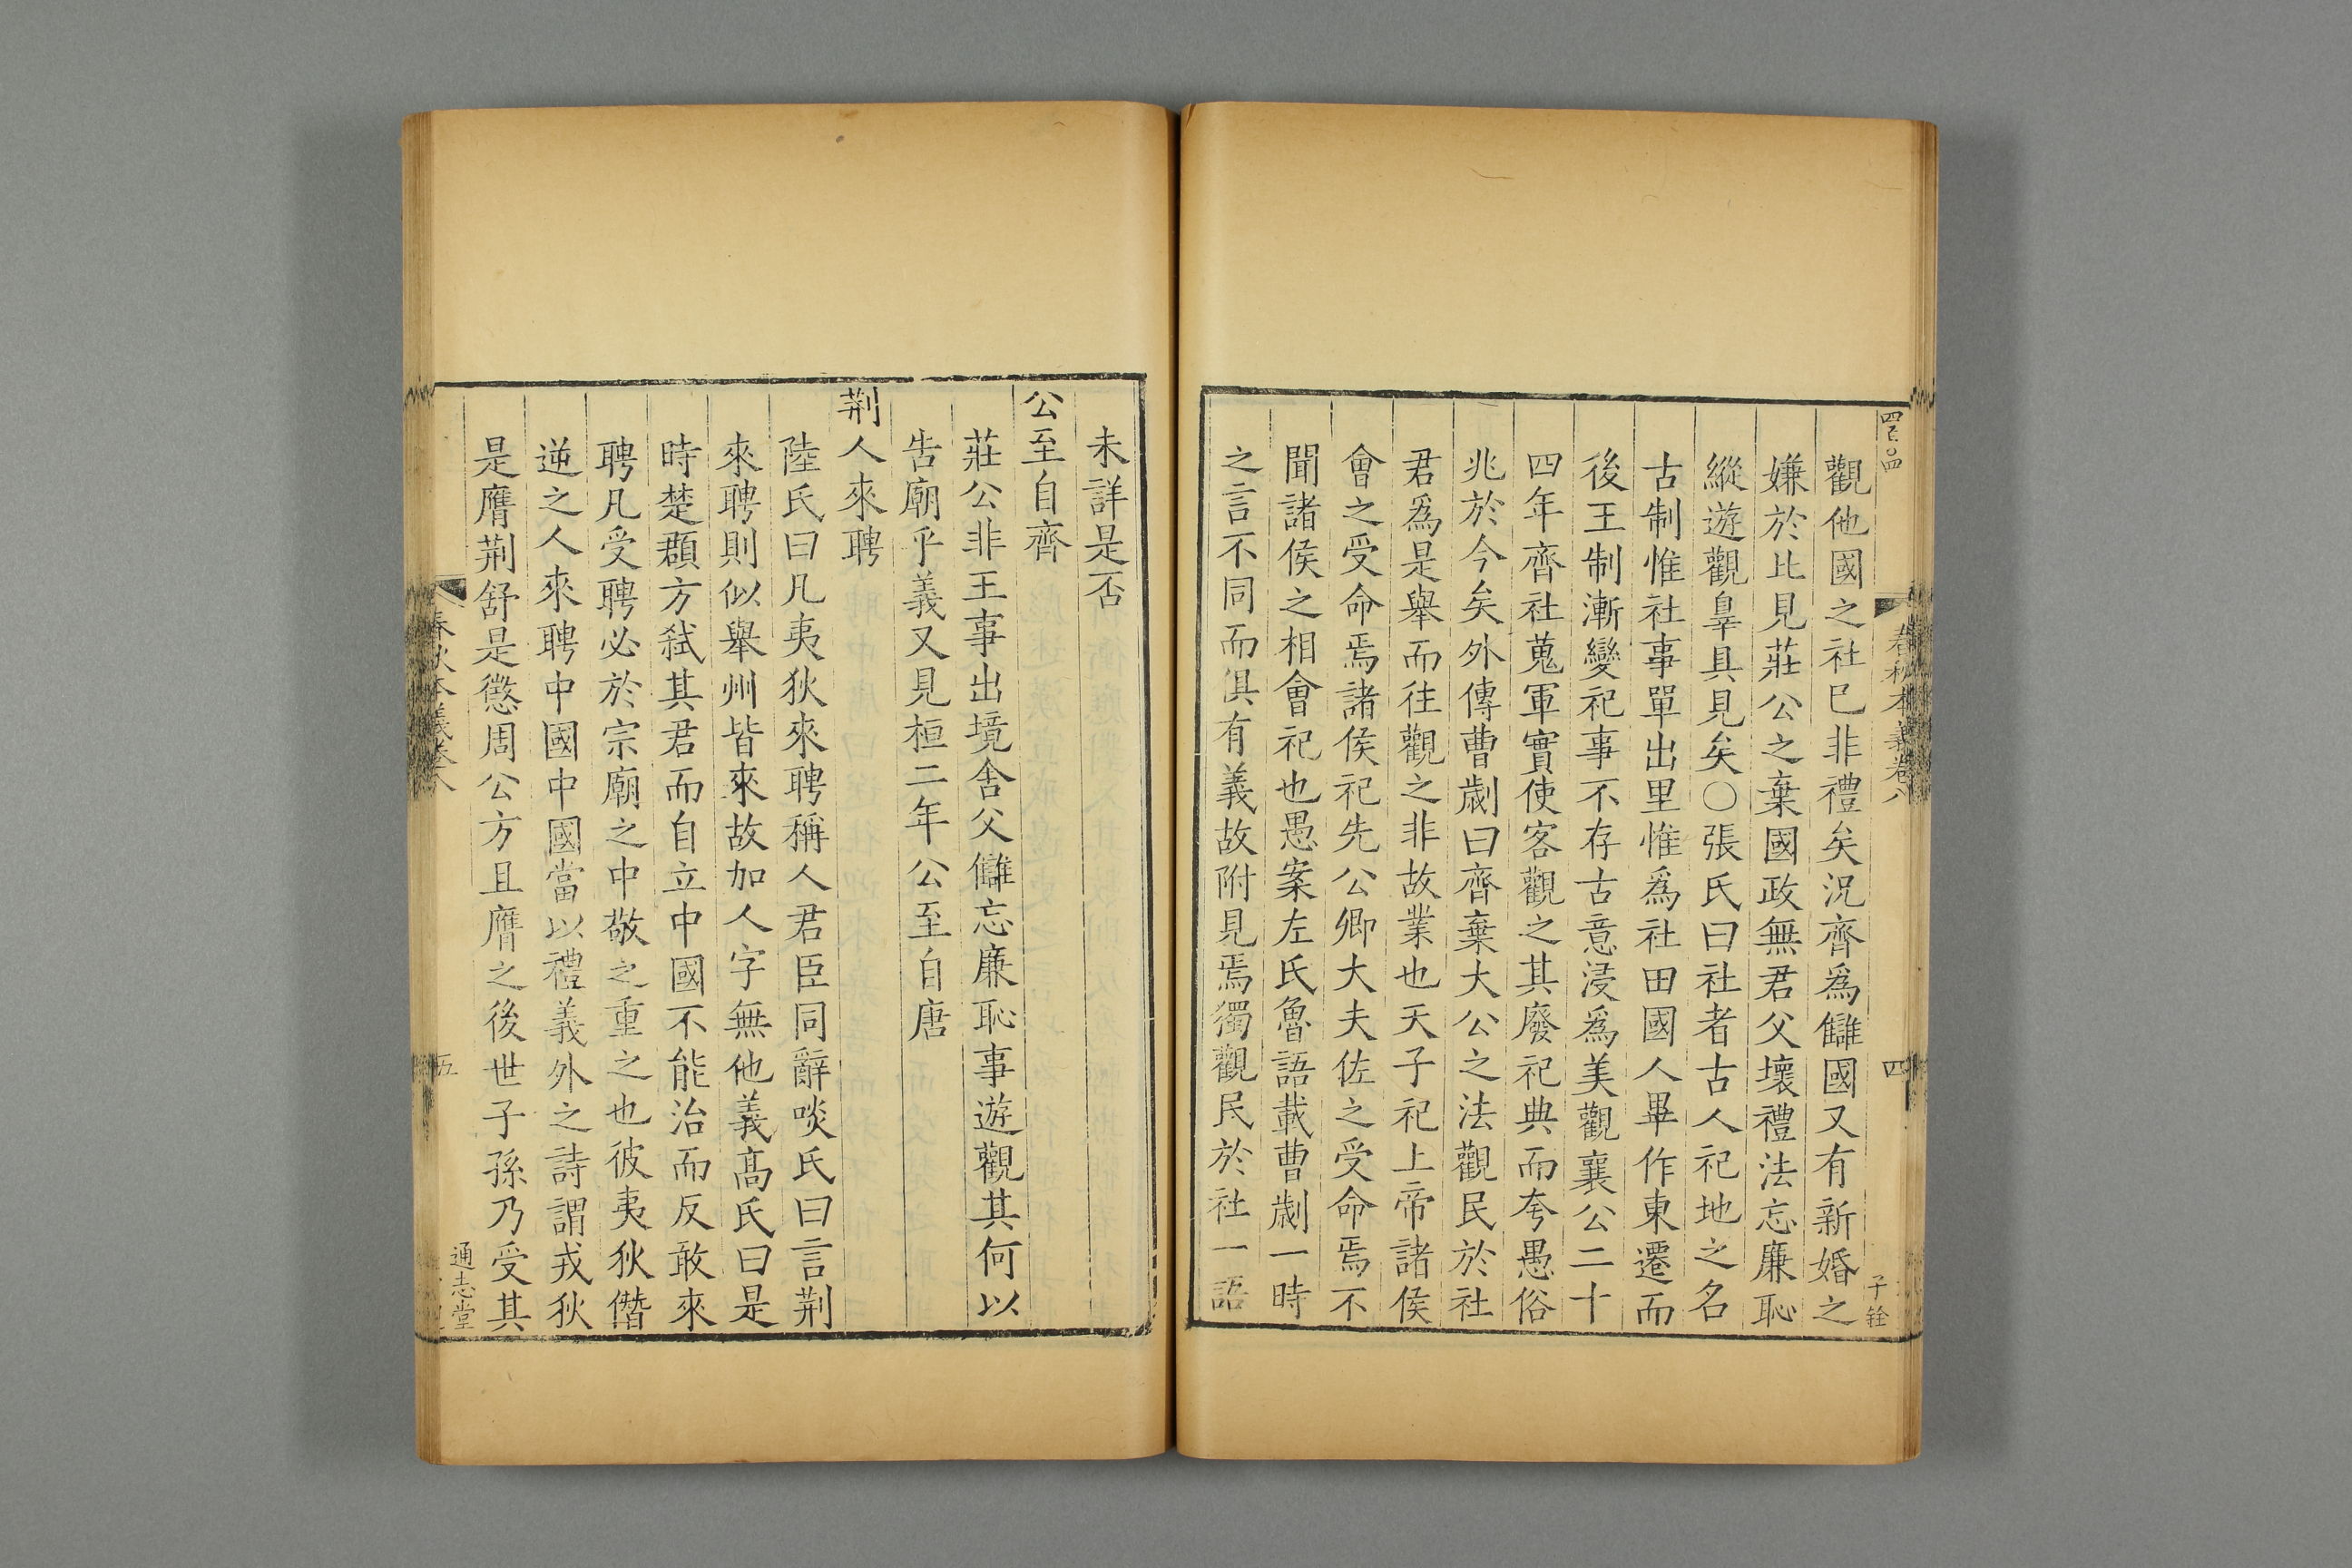 四百四
春秋本義卷八
四
子銓
觀他國之社已非禮矣況齊爲讎國又有新婚之
嫌於比見莊公之棄國政無君父壞禮法忘廉恥
縱遊觀辠具見矣○張氏曰社者古人祀地之名
古制惟社事單出里惟爲社田國人畢作東遷而
後王制漸變祀事不存古意浸爲美觀襄公二十
四年齊社蒐軍實使客觀之其廢祀典而夸愚俗
兆於今矣外傳曹劌曰齊棄大公之法觀民於社
君爲是舉而往觀之非故業也天子祀上帝諸侯
會之受命焉諸侯祀先公卿大夫佐之受命焉不
聞諸侯之相會祀也愚案左氏魯語載曹劌一時
之言不同而俱有義故附見焉獨觀民於社一語
未詳是否
公至自齊
莊公非王事出境舍父讎忘廉恥事遊觀其何以
告廟乎義又見桓二年公至自唐
荆人來聘
陸氏曰凡夷狄來聘稱人君臣同辭啖氏曰言荆
來聘則似舉州皆來故加人字無他義髙氏曰是
時楚頵方弑其君而自立中國不能治而反敢來
聘凡受聘必於宗廟之中敬之重之也彼夷狄僭
逆之人來聘中國中國當以禮義外之詩謂戎狄
是膺荆舒是懲周公方且膺之後世子孫乃受其
春秋本義卷八
五
通志堂